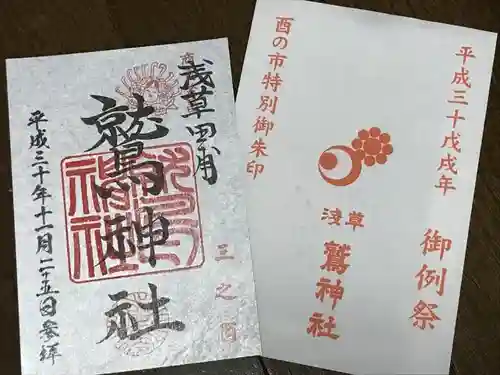 浅草田甫
鷲神社
三之酉
平成三十年十一月二十五日参拝
平成三十戊戌年
御例祭
浅草
鷲神社
酉の市特別御朱印